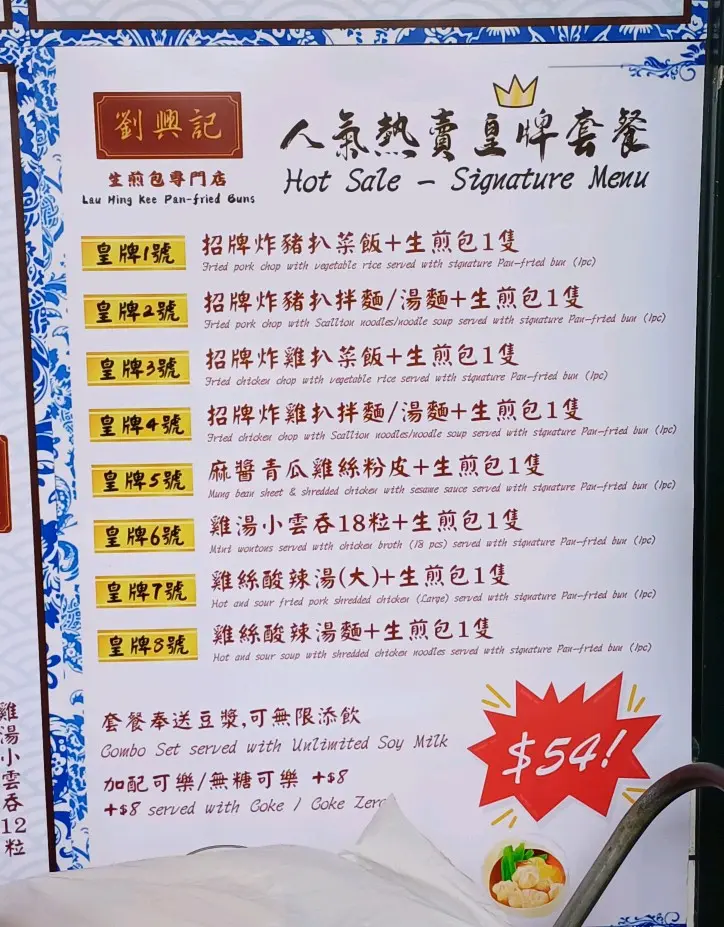 劉興記
生煎包專門店
Lau Hing Kee Pan-fried Buns
人氣熱賣皇牌套餐
Hot Sale – Signature Menu
皇牌1號
招牌炸豬扒菜飯+生煎包1隻
Fried pork chop with vegetable rice served with signature Pan-fried bun (1pc)
皇牌2號
招牌炸豬扒拌麵/湯麵+生煎包1隻
Fried pork chop with Scallion noodles/noodle soup served with signature Pan-fried bun (1pc)
皇牌3號
招牌炸雞扒菜飯+生煎包1隻
Fried chicken chop with vegetable rice served with signature Pan-fried bun (1pc)
皇牌4號
招牌炸雞扒拌麵/湯麵+生煎包1隻
Fried chicken chop with Scallion noodles/noodle soup served with signature Pan-fried bun (1pc)
皇牌5號
麻醬青瓜雞絲粉皮+生煎包1隻
Mung bean sheet & shredded chicken with sesame sauce served with signature Pan-fried bun (1pc)
皇牌6號
雞湯小雲吞18粒+生煎包1隻
Mini wontons served with chicken broth (18 pcs) served with signature Pan-fried bun (1pc)
皇牌7號
雞絲酸辣湯(大)+生煎包1隻
Hot and sour fried pork shredded chicken (Large) served with signature Pan-fried bun (1pc)
皇牌8號
雞絲酸辣湯麵+生煎包1隻
Hot and sour soup with shredded chicken noodles served with signature Pan-fried bun (1pc)
套餐奉送豆漿,可無限添飲
Combo Set served with Unlimited Soy Milk
加配可樂/無糖可樂 +$8
+$8 served with Coke / Coke Zero
$54!
雞湯小雲吞12粒